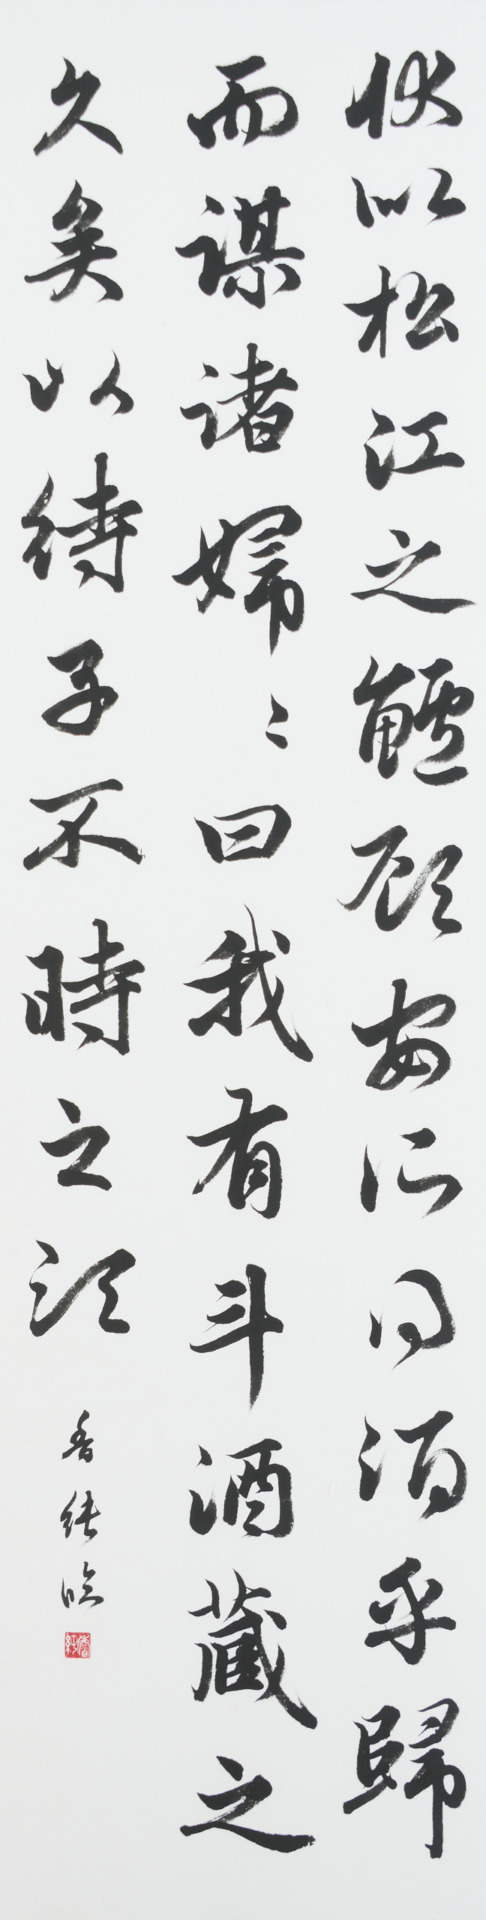 狀似松江之鱸顧安所得酒乎歸
而謀諸婦〻曰我有斗酒藏之
久矣以待子不時之須
香 臨